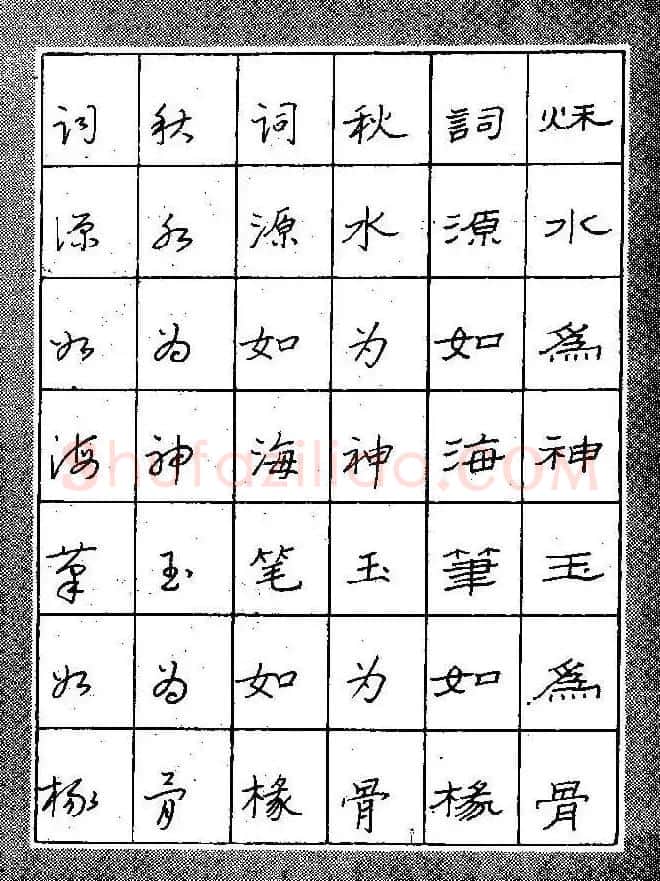 秌水爲神玉爲骨
詞源如海筆如椽
秋水为神玉为骨
词源如海笔如椽
秋水为神玉为骨
词源如海筆如椽
Shufaziliao.COM